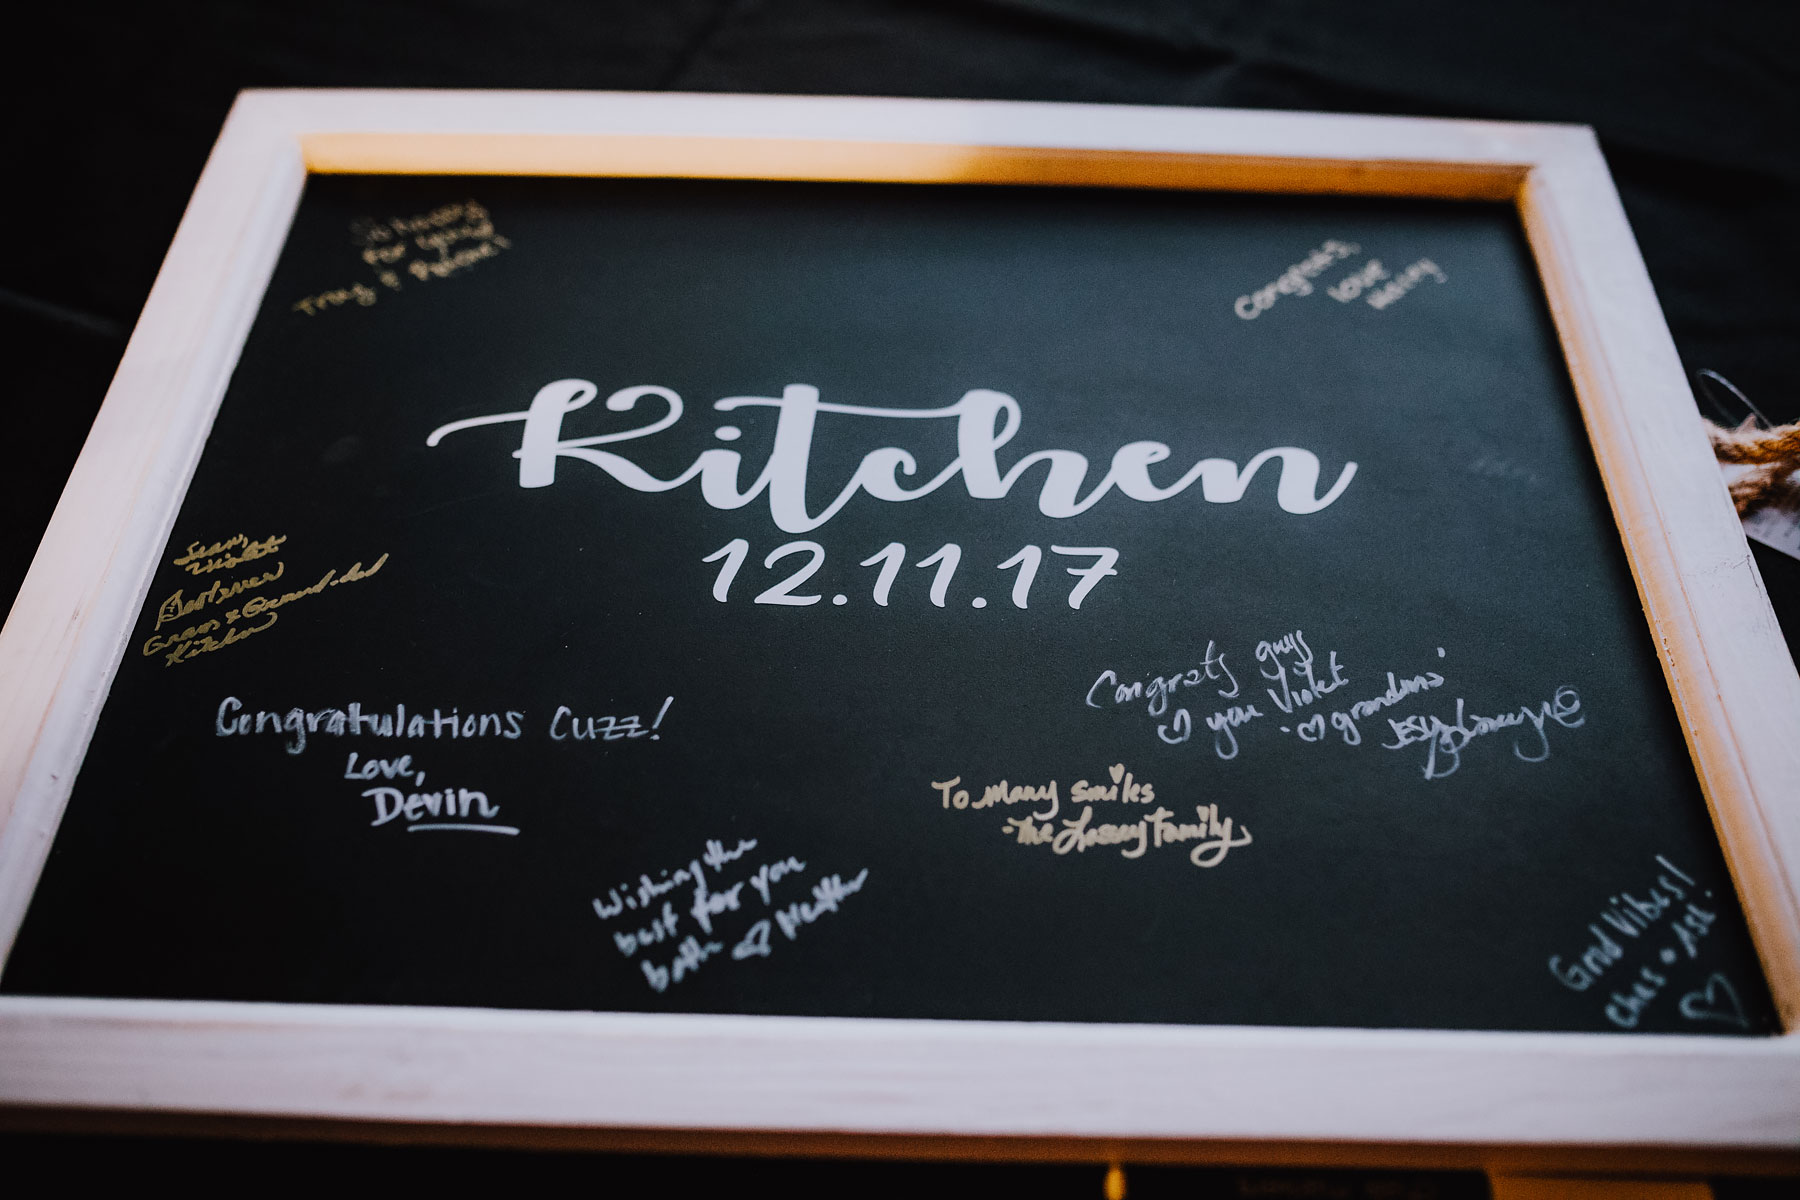 So happy
for you!
Tracy &
Congrats,
love
Kitchen
12.11.17
Sean,
Violet
Grams & Grand-dad
Kitchen
Congratulations Cuzz!
Love,
Devin
Congrats guys
you Violet
grandma
To many smiles
-The Family
Wishing the
best for you
both Heather
Good Vibes!
Ches